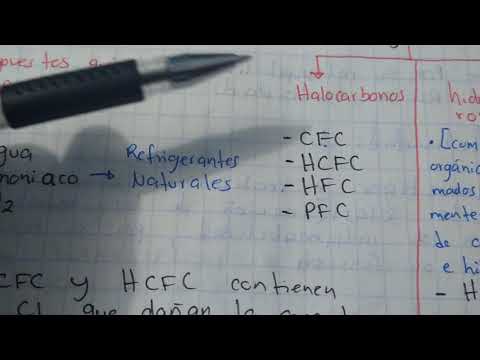 puestos
Halocarbonos
gua
moniaco →
2
Refrigerantes
Naturales
- CFC
- HCFC
- HFC
- PFC
hid
ro
• [com
orgánic
mados
mente
de c
e hi
- H
CFC y HCFC contienen
Cl que dañan la